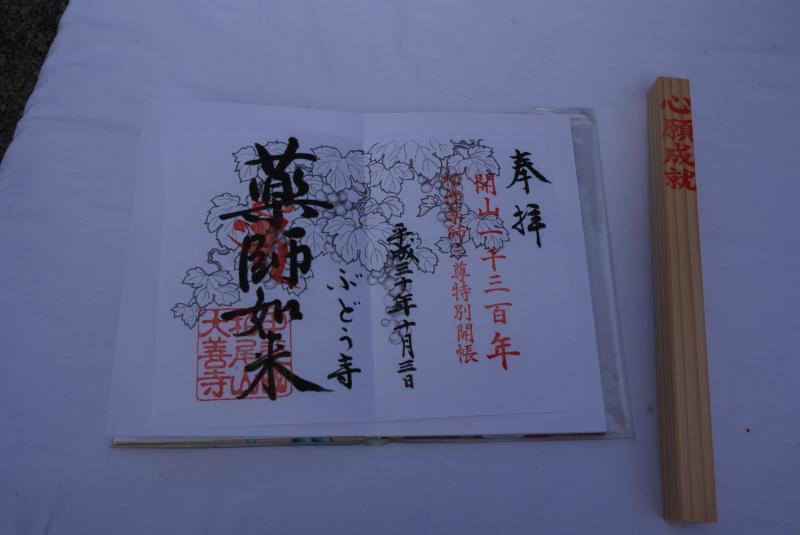 奉拝
開山一千三百年
秘佛薬師三尊特別開帳
平成三十年十月三日
ぶどう寺
薬師如来
柏尾山
大善寺
心願成就